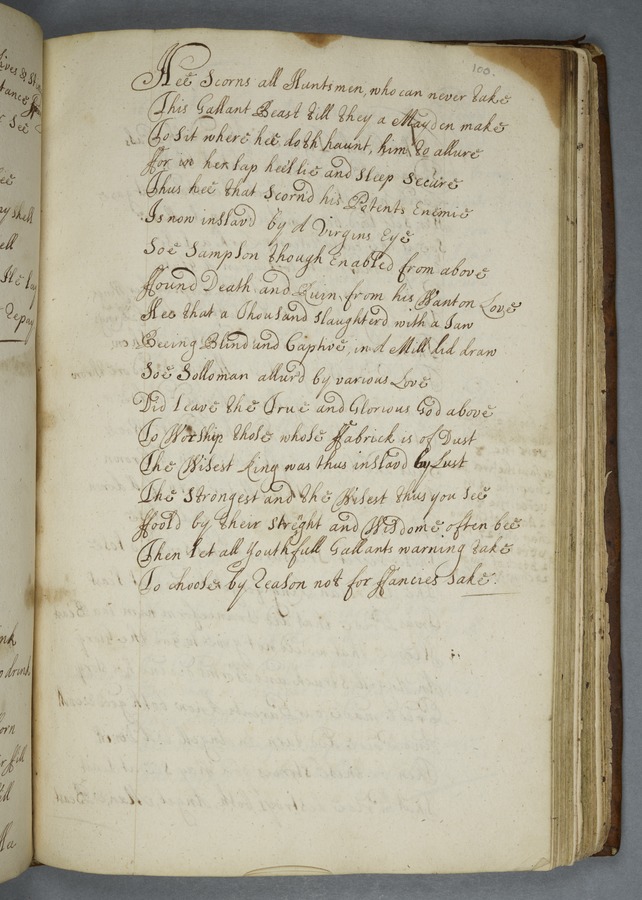 100.
Hee Scorns all Huntsmen, who can never take
This Gallant Beast till they a Mayden make
To sit where hee doth haunt, him to allure
ffor in her lap hee'l lie and sleep Secure
Thus hee that Scornd his Potents Enemie
Is now inslavd by a Virgins Eye
Soe Sampson though Enabled from above
ffound Death and Ruin from his Wanton Love
Hee that a Thousand slaughterd with a Jaw
Beeing Blind and Captive in a Mill did draw
Soe Solloman allurd by various Love
Did leave the True and Glorious God above
To Worship those whose ffabrick is of Dust
The Wisest King was thus inslavd by Lust
The Strongest and the Wisest thus you see
ffoold by their Streght and Wisdome often bee
Then let all Youthfull Gallants warning take
To choose by Reason not for ffancies sake.